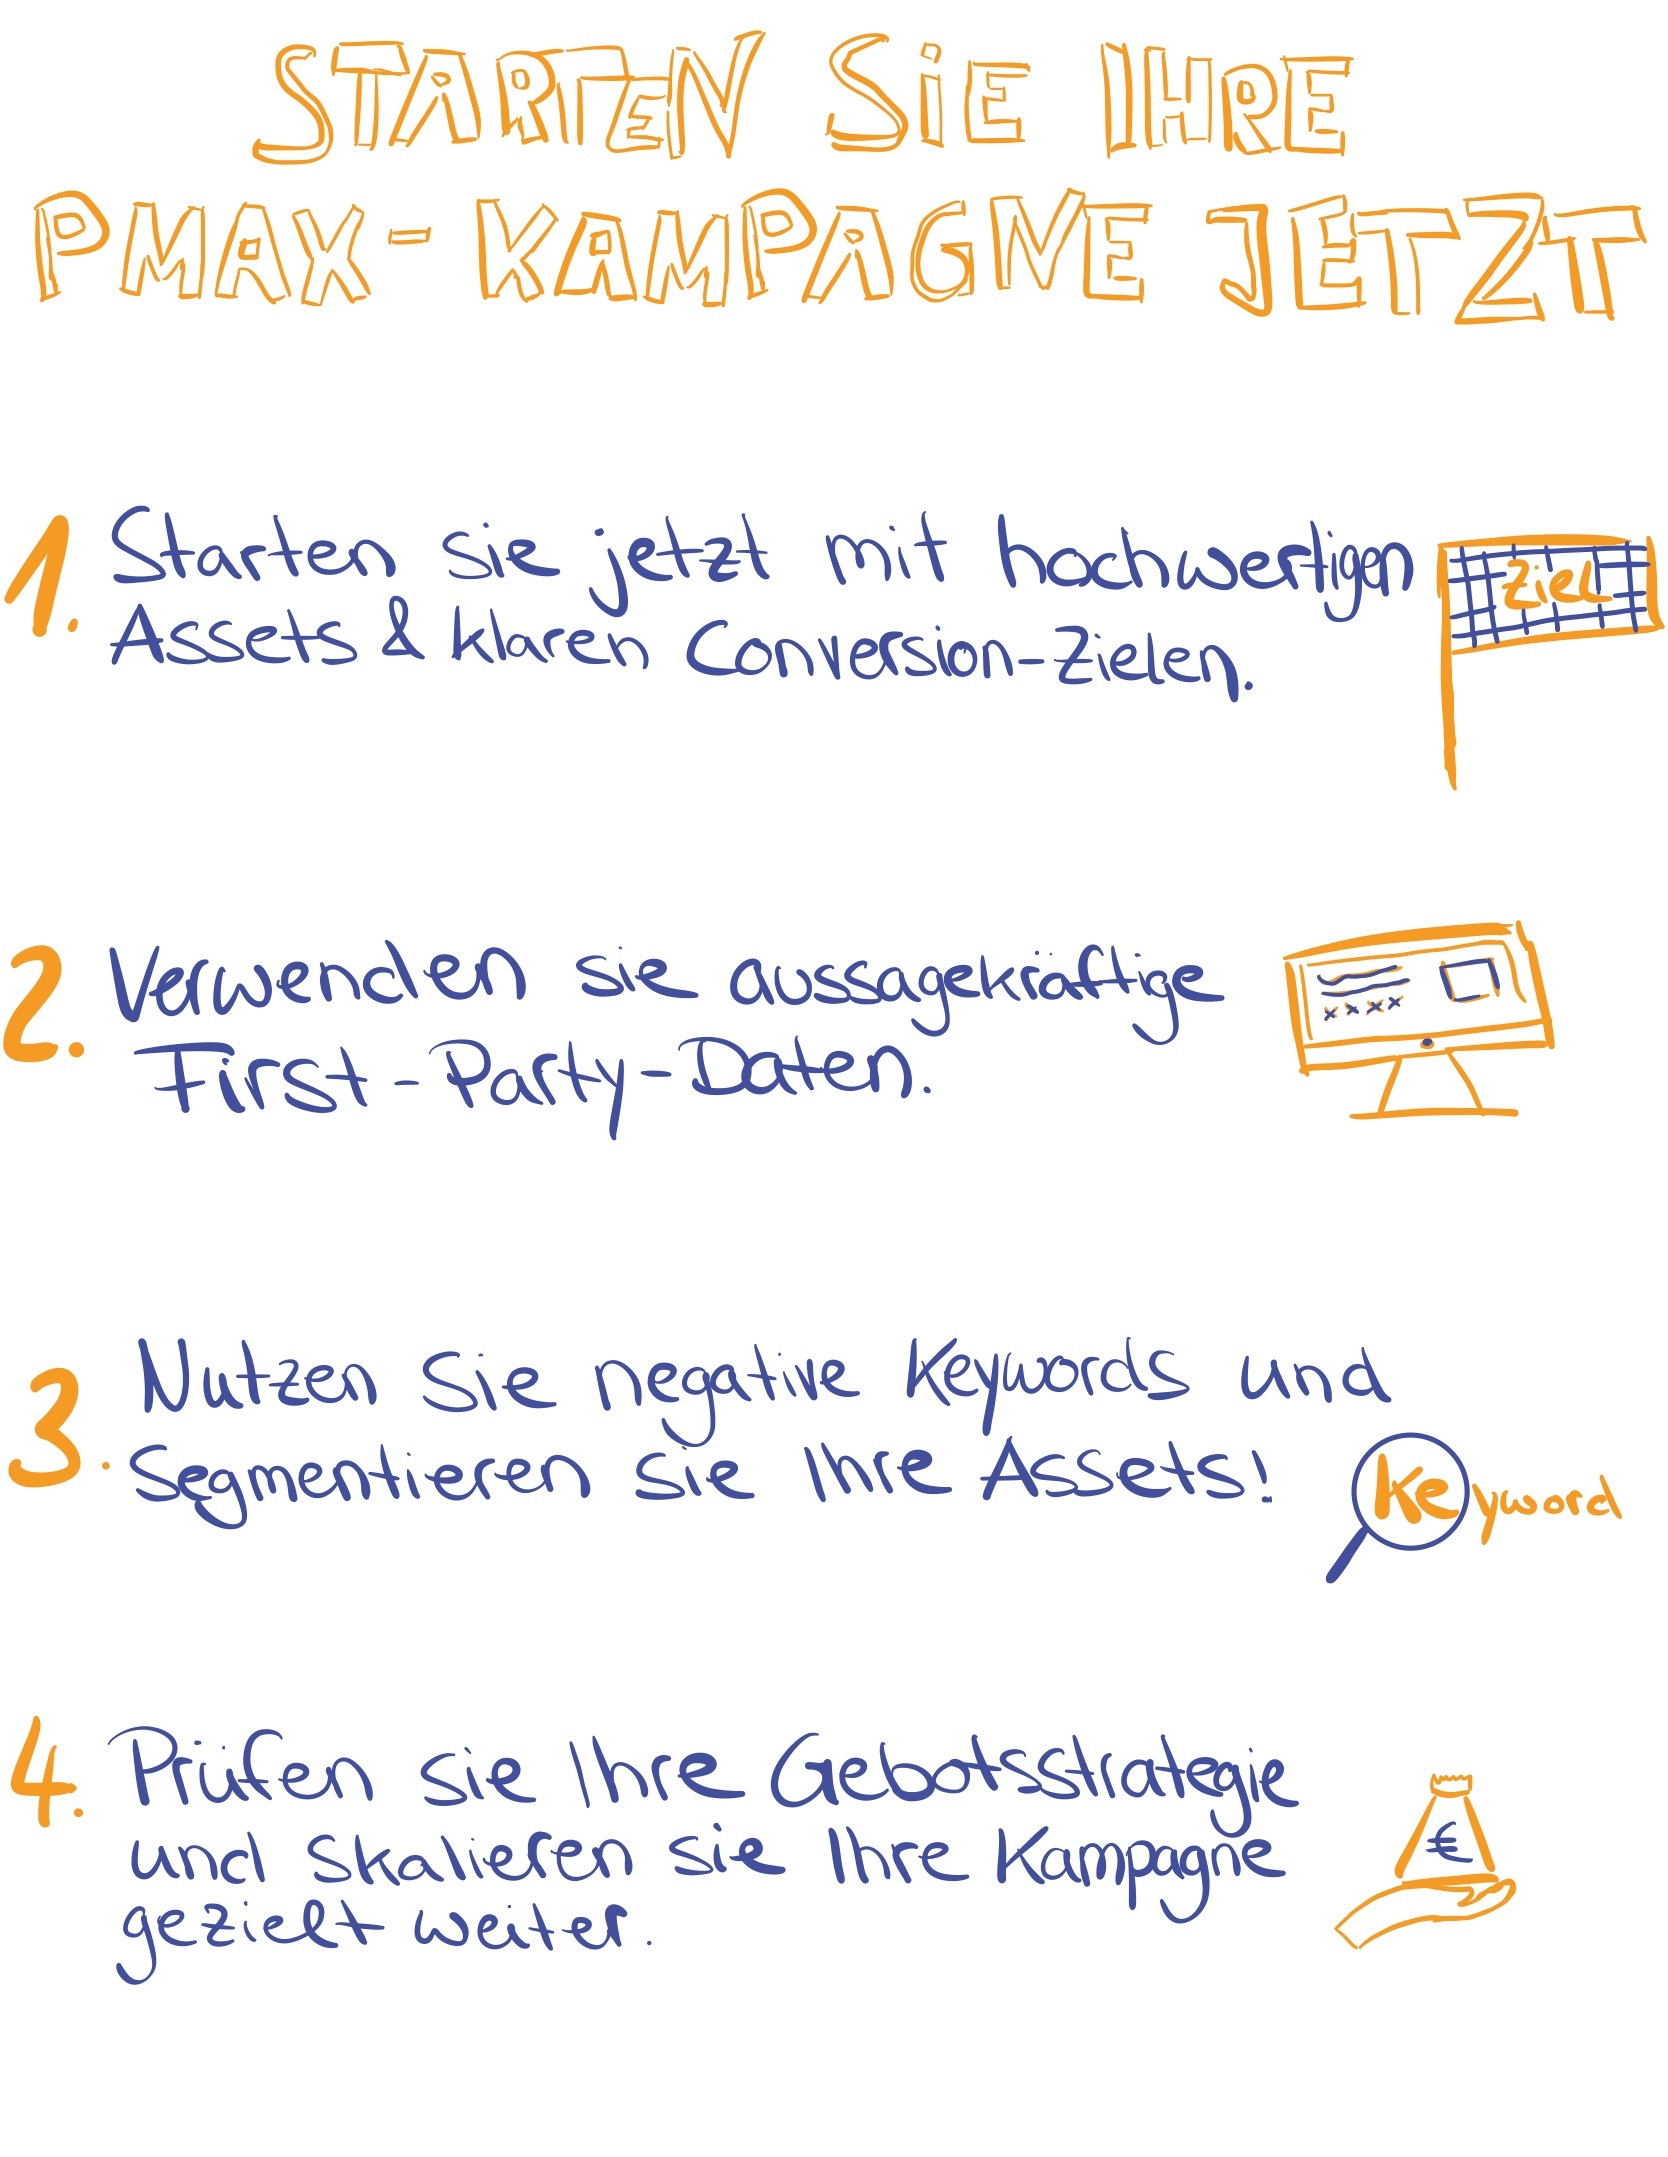 STARTEN SiE IHRE
PMAX-KAMPAGNE JETZT
1. Starten sie jetzt mit hochwertigen
Assets & klaren Conversion-Zielen.
Ziel
2. Verwenden sie aussagekräftige
First-Party-Daten.
3. Nutzen Sie negative Keywords und
Segmentieren Sie Ihre Assets!
Keyword
4. Prüfen sie Ihre Gebotsstrategie
und skalieren sie Ihre Kampagne
gezielt weiter.
€